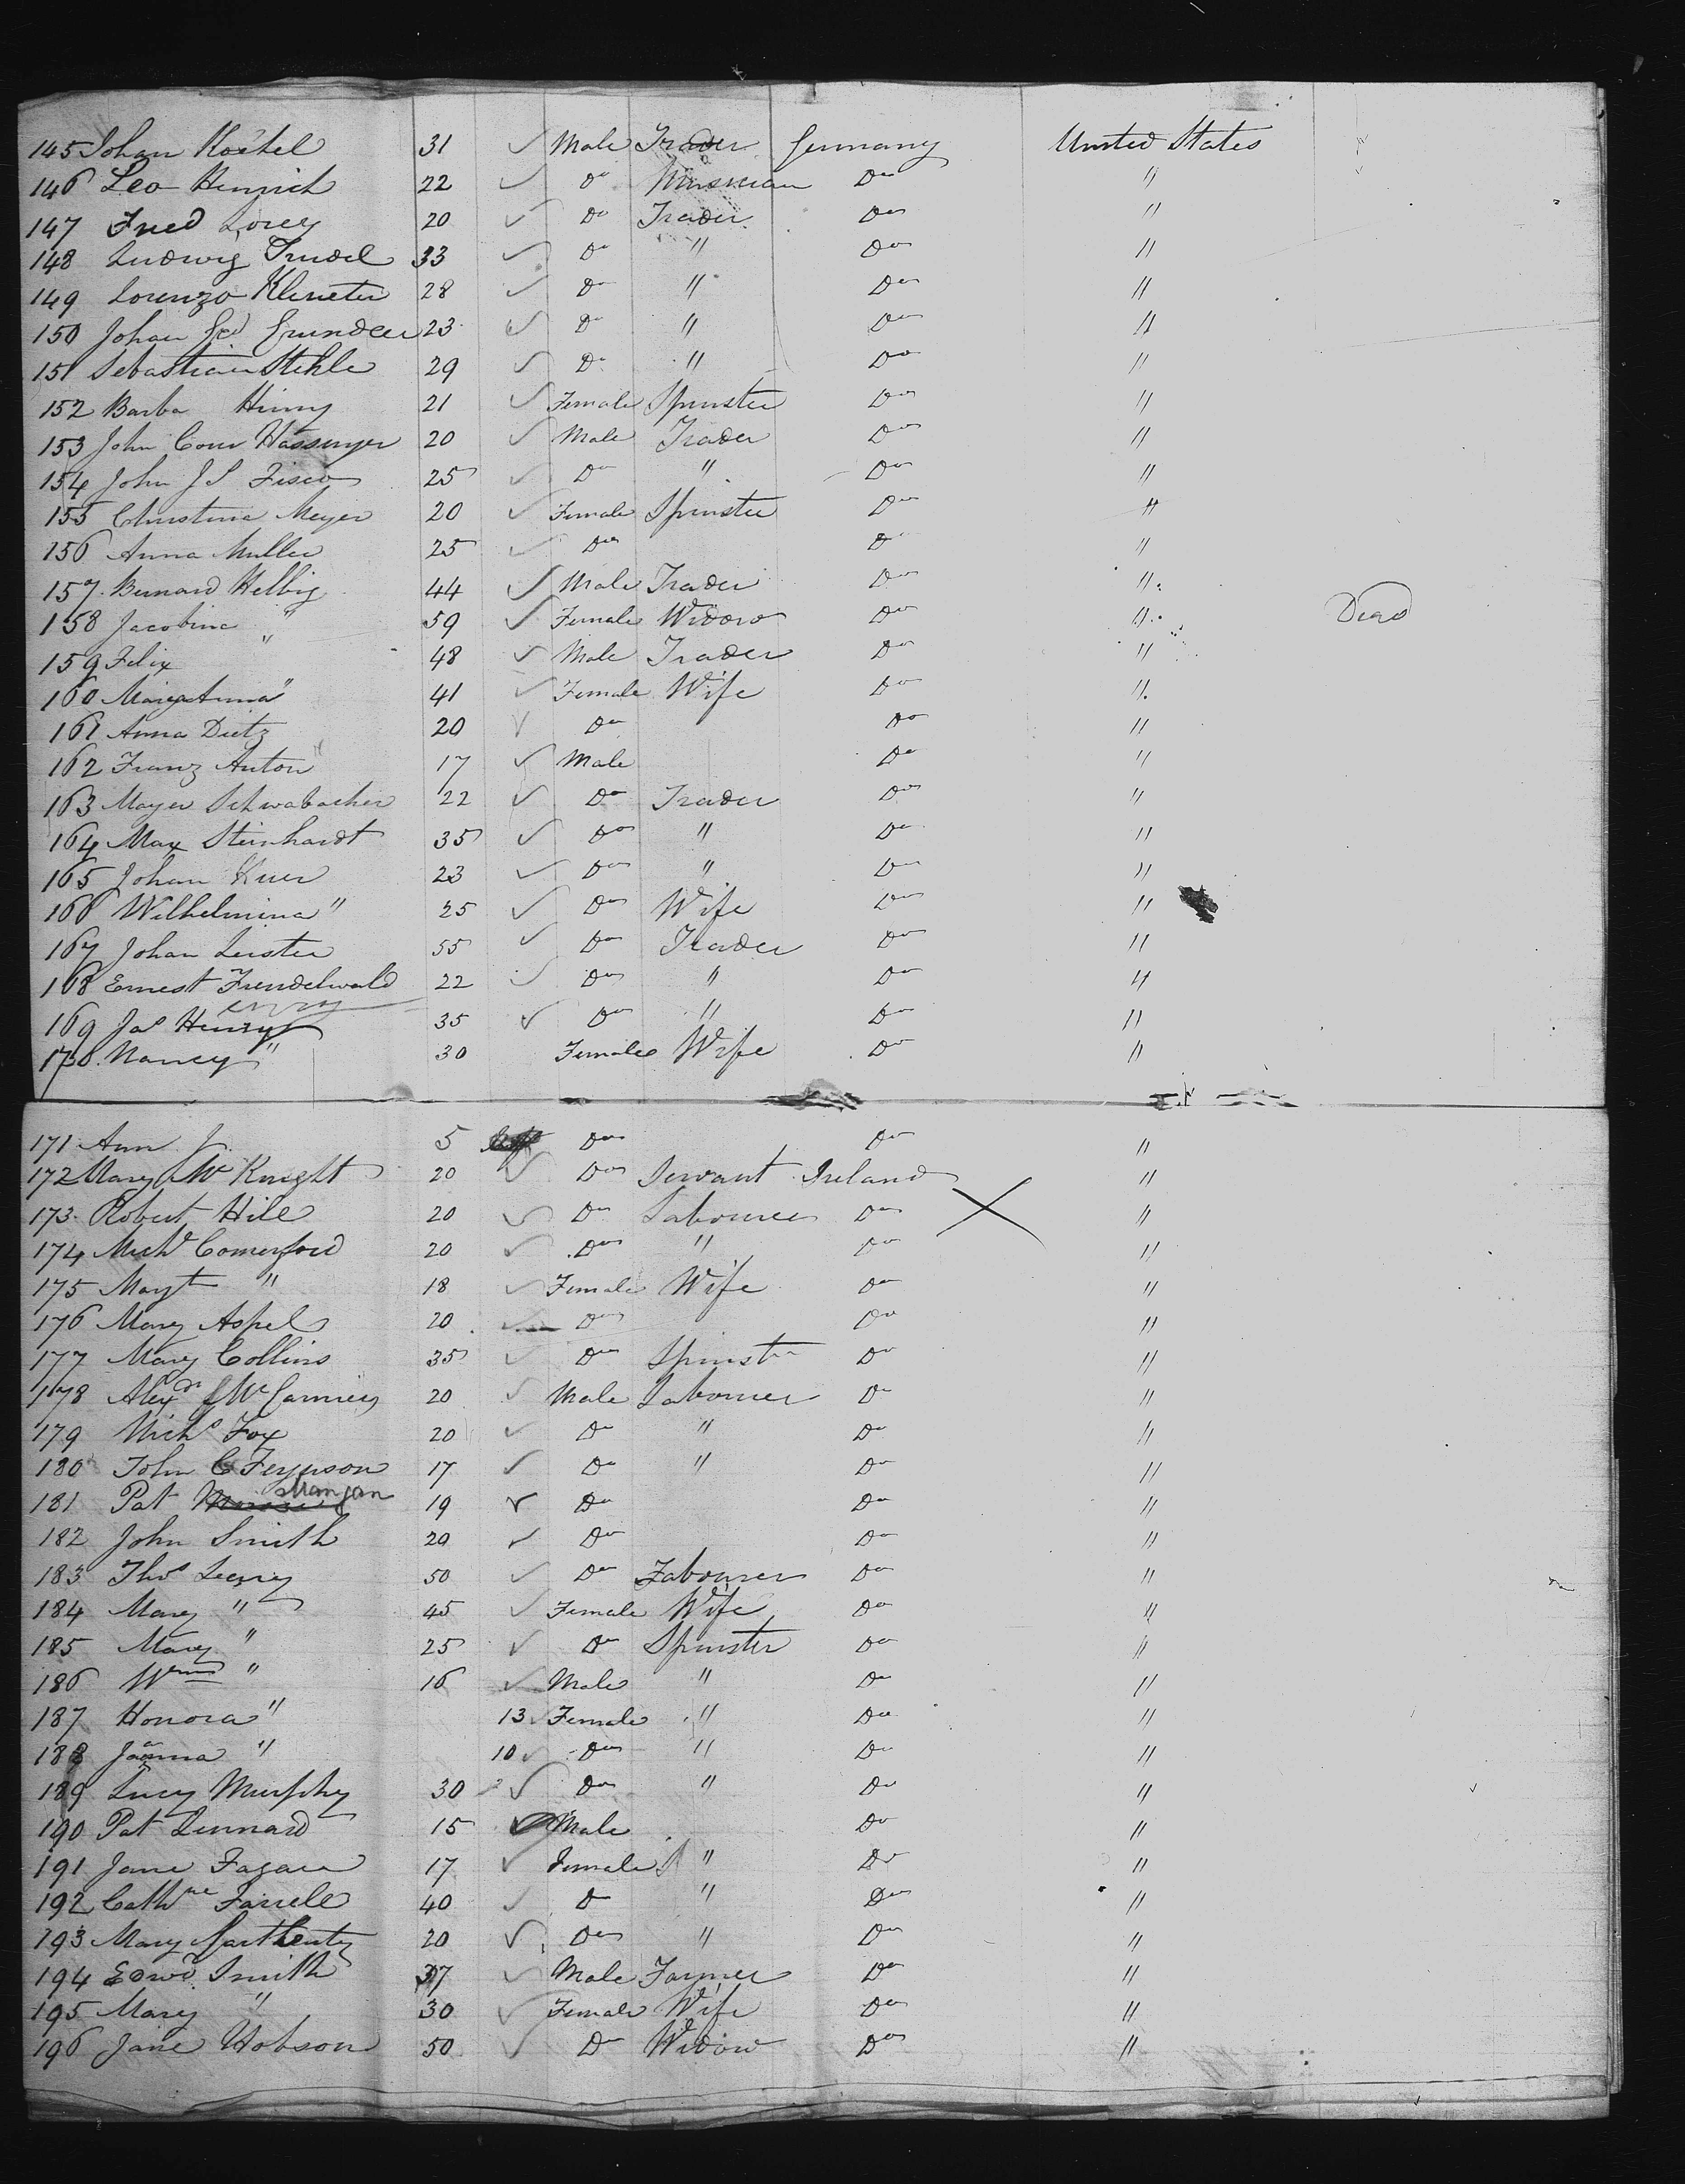 145 Johan Köstel 31 ✓ Male Trader Germany United States
146 Leo Henrich 22 ✓ Do Musician Do "
147 Fred Lorey 20 ✓ Do Trader Do "
148 Ludwig Trudel 33 ✓ Do " Do "
149 Lorenzo 28 ✓ Do " Do "
150 Johan Grundler 23 ✓ Do " Do "
151 Sebastian Stehle 29 ✓ Do " Do "
152 Barba Hinny 21 ✓ Female Spinster Do "
153 John Conr Hassinger 20 ✓ Male Trader Do "
154 John J S Fisco 25 ✓ Do " Do "
155 Christina Meyer 20 ✓ Female Spinster Do "
156 Anna Muller 25 ✓ Do Do "
157 Bernard Helbig 44 ✓ Male Trader Do "
158 Jacobina " 59 ✓ Female Widow Do " Dead
159 Felix " 48 ✓ Male Trader Do "
160 Marya Anna " 41 ✓ Female Wife Do "
161 Anna Dietz 20 ✓ Do Do "
162 Franz Anton " 17 ✓ Male Do "
163 Mayer Schwabacher 22 ✓ Do Trader Do "
164 Max Steinhardt 35 ✓ Do " Do "
165 Johan Kuer 23 ✓ Do " Do "
166 Wilhelmina " 25 ✓ Do Wife Do "
167 Johan Leister 55 ✓ Do Trader Do "
168 Ernest Frendelwald 22 ✓ Do " Do "
169 Jas Henry 35 ✓ Do " Do "
170 Nancy " 30 Female Wife Do "
171 Ann J. 5 Do Do "
172 Mary McKnight 20 ✓ Do Servant Ireland "
173 Robert Hill 20 ✓ Do Labourer Do X "
174 Michl Comerford 20 ✓ Do " Do "
175 Margt " 18 ✓ Female Wife Do "
176 Mary Aspel 20 ✓ Do Do "
177 Mary Collins 35 ✓ Do Spinster Do "
178 Alexdr 20 ✓ Male Labourer Do "
179 Michl Fox 20 ✓ Do " Do "
180 John C Ferguson 17 ✓ Do " Do "
181 Pat Mangan 19 ✓ Do Do "
182 John Smith 20 ✓ Do Do "
183 Thos Leary 50 ✓ Do Labourer Do "
184 Mary " 45 ✓ Female Wife Do "
185 Mary " 25 ✓ Do Spinster Do "
186 Wm " 16 ✓ Male " Do "
187 Honora " 13 ✓ Female " Do "
188 Joanna " 10 ✓ Do " Do "
189 Lucy Murphy 30 ✓ Do " Do "
190 Pat Lennard 15 ✓ Male Do "
191 Jane Fagan 17 ✓ Female " Do "
192 Cathne Farrell 40 ✓ Do " Do "
193 Mary 20 ✓ Do " Do "
194 Edwd Smith 37 ✓ Male Farmer Do "
195 Mary " 30 ✓ Female Wife Do "
196 Jane Hobson 50 ✓ Do Widow Do "